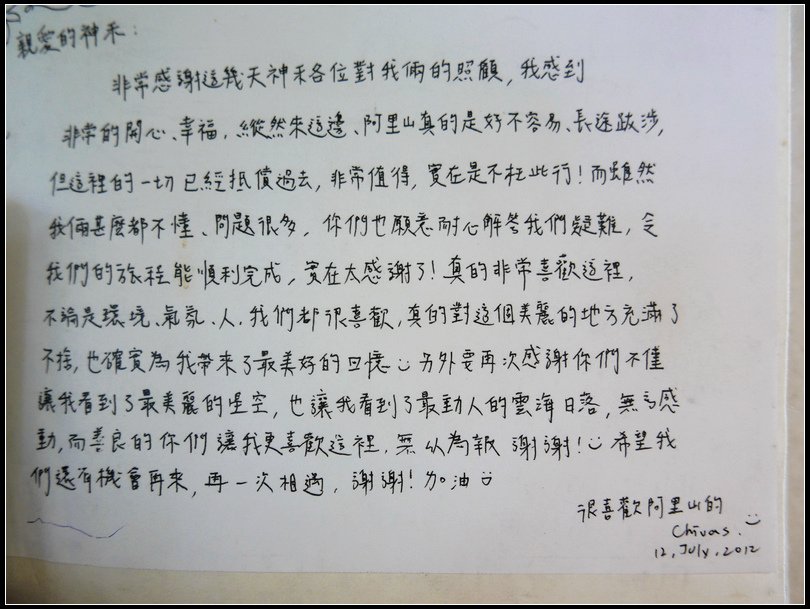 親愛的神禾：
非常感謝這幾天神禾各位對我倆的照顧，我感到
非常的開心、幸福，縱然來這邊、阿里山真的是好不容易、長途跋涉，
但這裡的一切已經抵償過去，非常值得，實在是不枉此行！而雖然
我倆甚麼都不懂、問題很多，你們也願意耐心解答我們疑難，令
我們的旅程能順利完成，實在太感謝了！真的非常喜歡這裡，
不論是環境、氣氛、人，我們都很喜歡，真的對這個美麗的地方充滿了
不捨，也確實為我帶來了最美好的回憶 另外要再次感謝你們不僅
讓我看到了最美麗的星空，也讓我看到了最動人的雲海日落，無言感
動，而善良的你們讓我更喜歡這裡，無以為報 謝謝！希望我
們還有機會再來，再一次相遇，謝謝！加油
很喜歡阿里山的
Chivas.
12, July, 2012